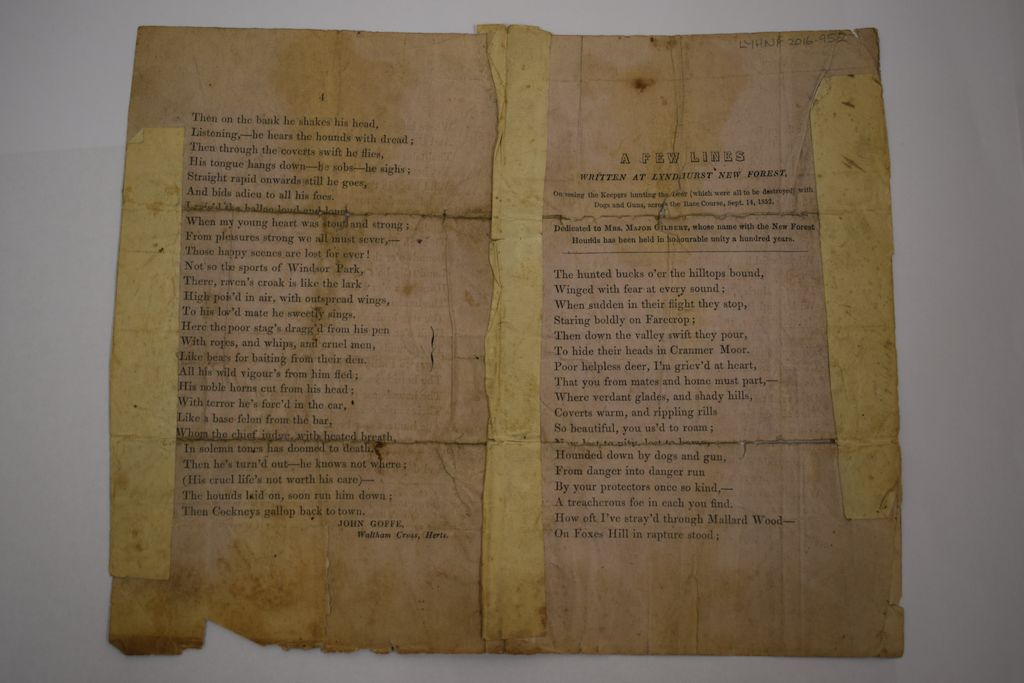 4
Then on the bank he shakes his head,
Listening,—he hears the hounds with dread;
Then through the coverts swift he flies,
His tongue hangs down—he sobs—he sighs;
Straight rapid onwards still he goes,
And bids adieu to all his foes.
the halloo loud and long
When my young heart was stout and strong;
From pleasures strong we all must sever,—
Those happy scenes are lost for ever!
Not so the sports of Windsor Park,
There, raven's croak is like the lark
High pois'd in air, with outspread wings,
To his lov'd mate he sweetly sings.
Here the poor stag's dragg'd from his pen
With ropes, and whips, and cruel men,
Like bears for baiting from their den.
All his wild vigour's from him fled;
His noble horns cut from his head;
With terror he's forc'd in the car,
Like a base felon from the bar,
Whom the chief judge, with heated breath,
In solemn tones has doomed to death,
Then he's turn'd out—he knows not where;
(His cruel life's not worth his care)—
The hounds laid on, soon run him down;
Then Cockneys gallop back to town.
JOHN GOFFE,
Waltham Cross, Herts.
LYHNF 2016.952
A FEW LINES
WRITTEN AT LYNDHURST NEW FOREST,
On seeing the Keepers hunting the Deer (which were all to be destroyed) with
Dogs and Guns, across the Race Course, Sept. 14, 1852.
Dedicated to Mrs. Major Gilbert, whose name with the New Forest
Hounds has been held in honourable unity a hundred years.
The hunted bucks o'er the hilltops bound,
Winged with fear at every sound;
When sudden in their flight they stop,
Staring boldly on Farecrop;
Then down the valley swift they pour,
To hide their heads in Cranmer Moor.
Poor helpless deer, I'm griev'd at heart,
That you from mates and home must part,—
Where verdant glades, and shady hills,
Coverts warm, and rippling rills
So beautiful, you us'd to roam;
Now lost to pity, lost to home,
Hounded down by dogs and gun,
From danger into danger run
By your protectors once so kind,—
A treacherous foe in each you find.
How oft I've stray'd through Mallard Wood—
On Foxes Hill in rapture stood;